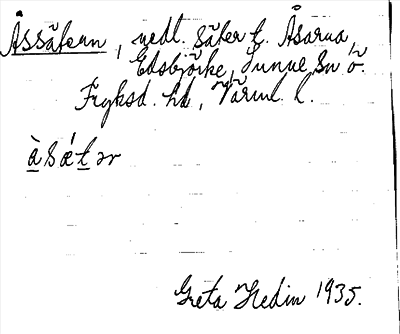 Åssätern, nedl. säter t. Åsarna,
Edsbjörke, Sunne sn ö.
Fryksd. hd, Värml. l.
àsǽtər
Greta Hedin 1935.